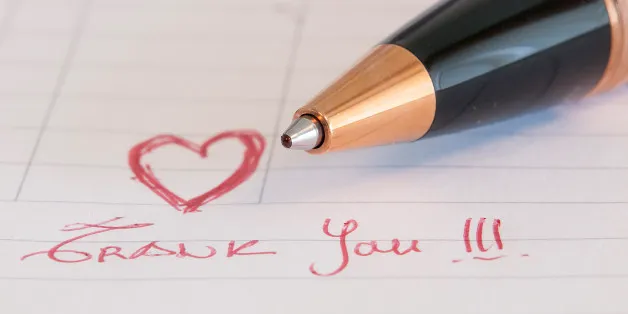 Thank You !!!